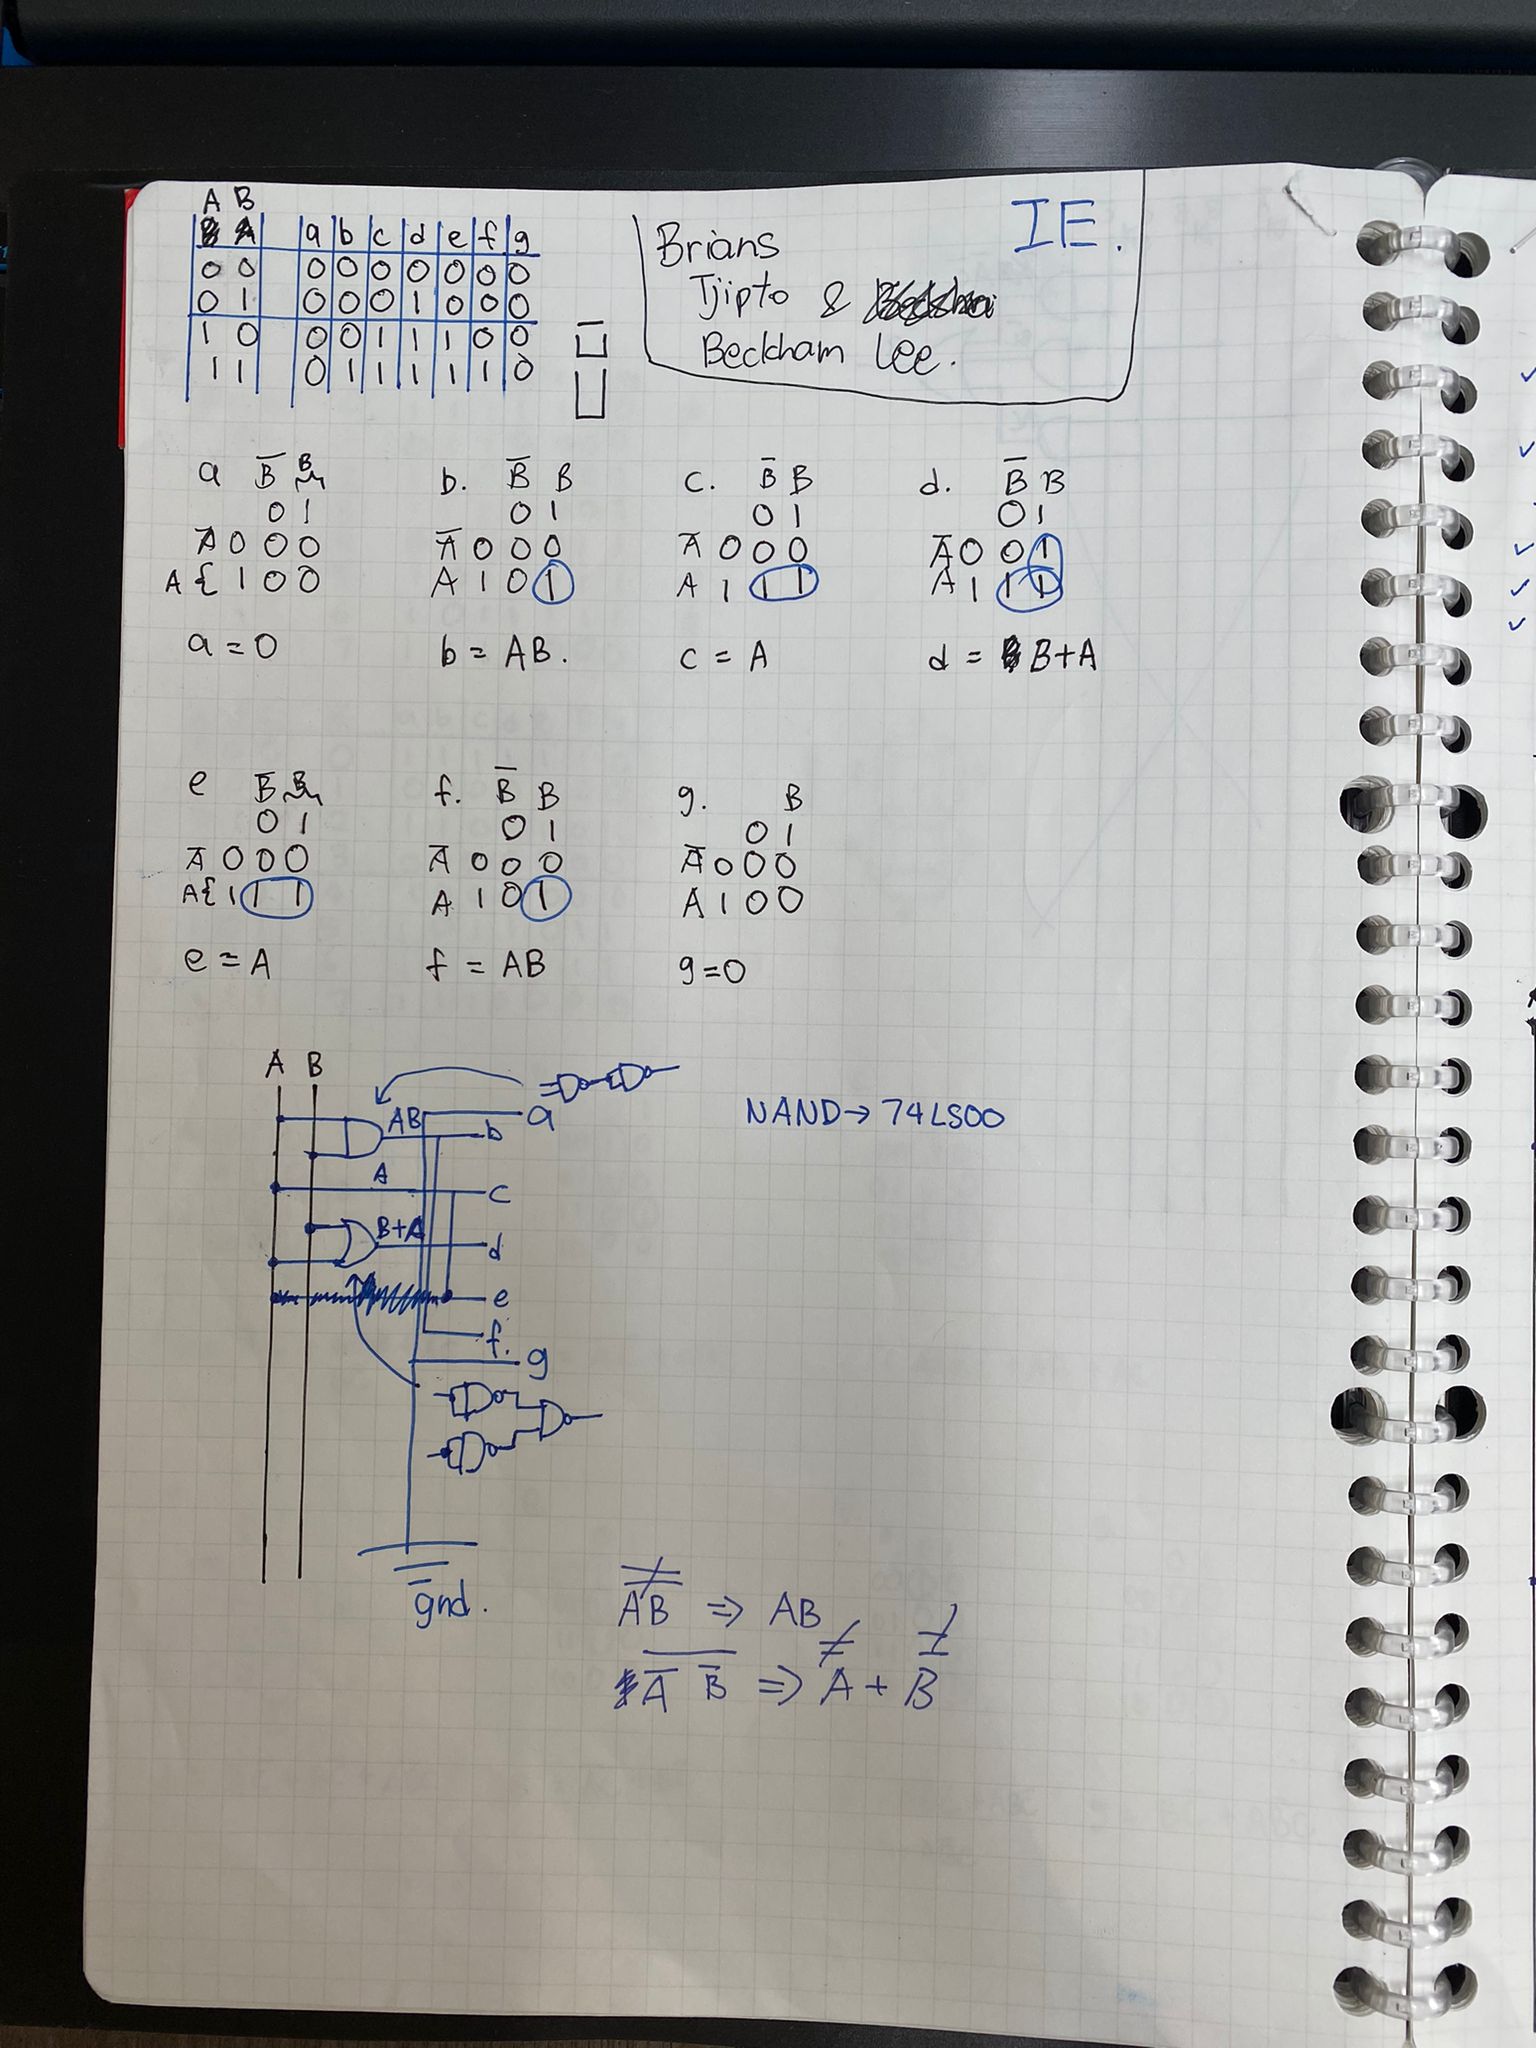 A B
a b c d e f g
0 0 0 0 0 0 0 0 0
0 1 0 0 0 1 0 0 0
1 0 0 0 1 1 1 0 0
1 1 0 1 1 1 1 1 0
IE.
Brians
Tjipto &
Beckham Lee.
a B̅ B
0 1
A̅ 0 0 0
A { 1 0 0
a = 0
b. B̅ B
0 1
A̅ 0 0 0
A 1 0 1
b = AB.
c. B̅ B
0 1
A̅ 0 0 0
A 1 1 1
c = A
d. B̅ B
0 1
A̅ 0 0 1
A 1 1 1
d = B+A
e B̅ B
0 1
A̅ 0 0 0
A{ 1 1 1
e = A
f. B̅ B
0 1
A̅ 0 0 0
A 1 0 1
f = AB
g. B
0 1
A̅ 0 0 0
A 1 0 0
g=0
A B
AB a
b
A c
B+A d
e
f.
g
gnd.
NAND → 74LS00
A̿B̿ ⇒ AB
A̅ B̅ ⇒ A + B